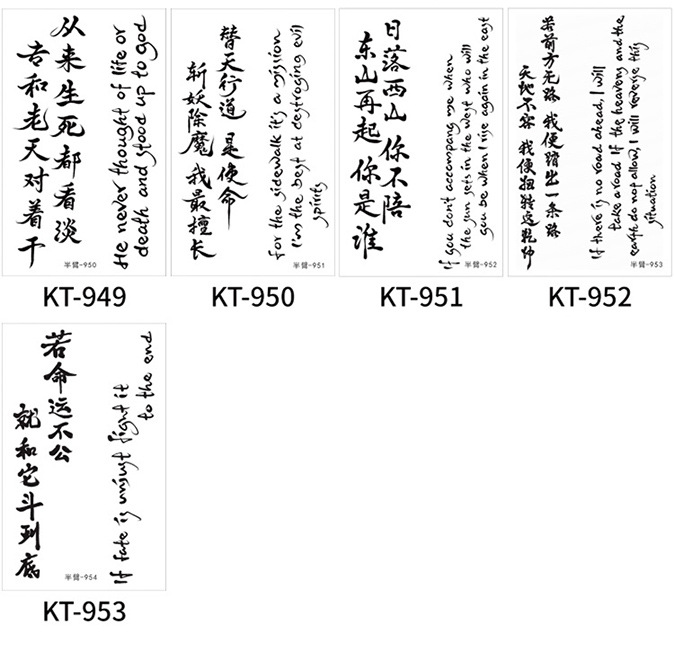 从来生死都看淡
专和老天对着干
He never thought of life or
death and stood up to god
半臂-950
KT-949
替天行道 是使命
斩妖除魔 我最擅长
For the sidewalk it's a mission
I'm the best at destroging evil
spirits
半臂-951
KT-950
日落西山 你不陪
东山再起 你是谁
If you don't accompany me when
the sun sets in the west who will
you be when I rise again in the east
半臂-952
KT-951
若前方无路 我便踏出一条路
天地不容 我便扭转这乾坤
If there is no road ahead, I will
take a road If the heavens and the
earth do not allow, I will reverse this
situation
半臂-953
KT-952
若命运不公
就和它斗到底
If fate is unjust fight it
to the end
半臂-954
KT-953